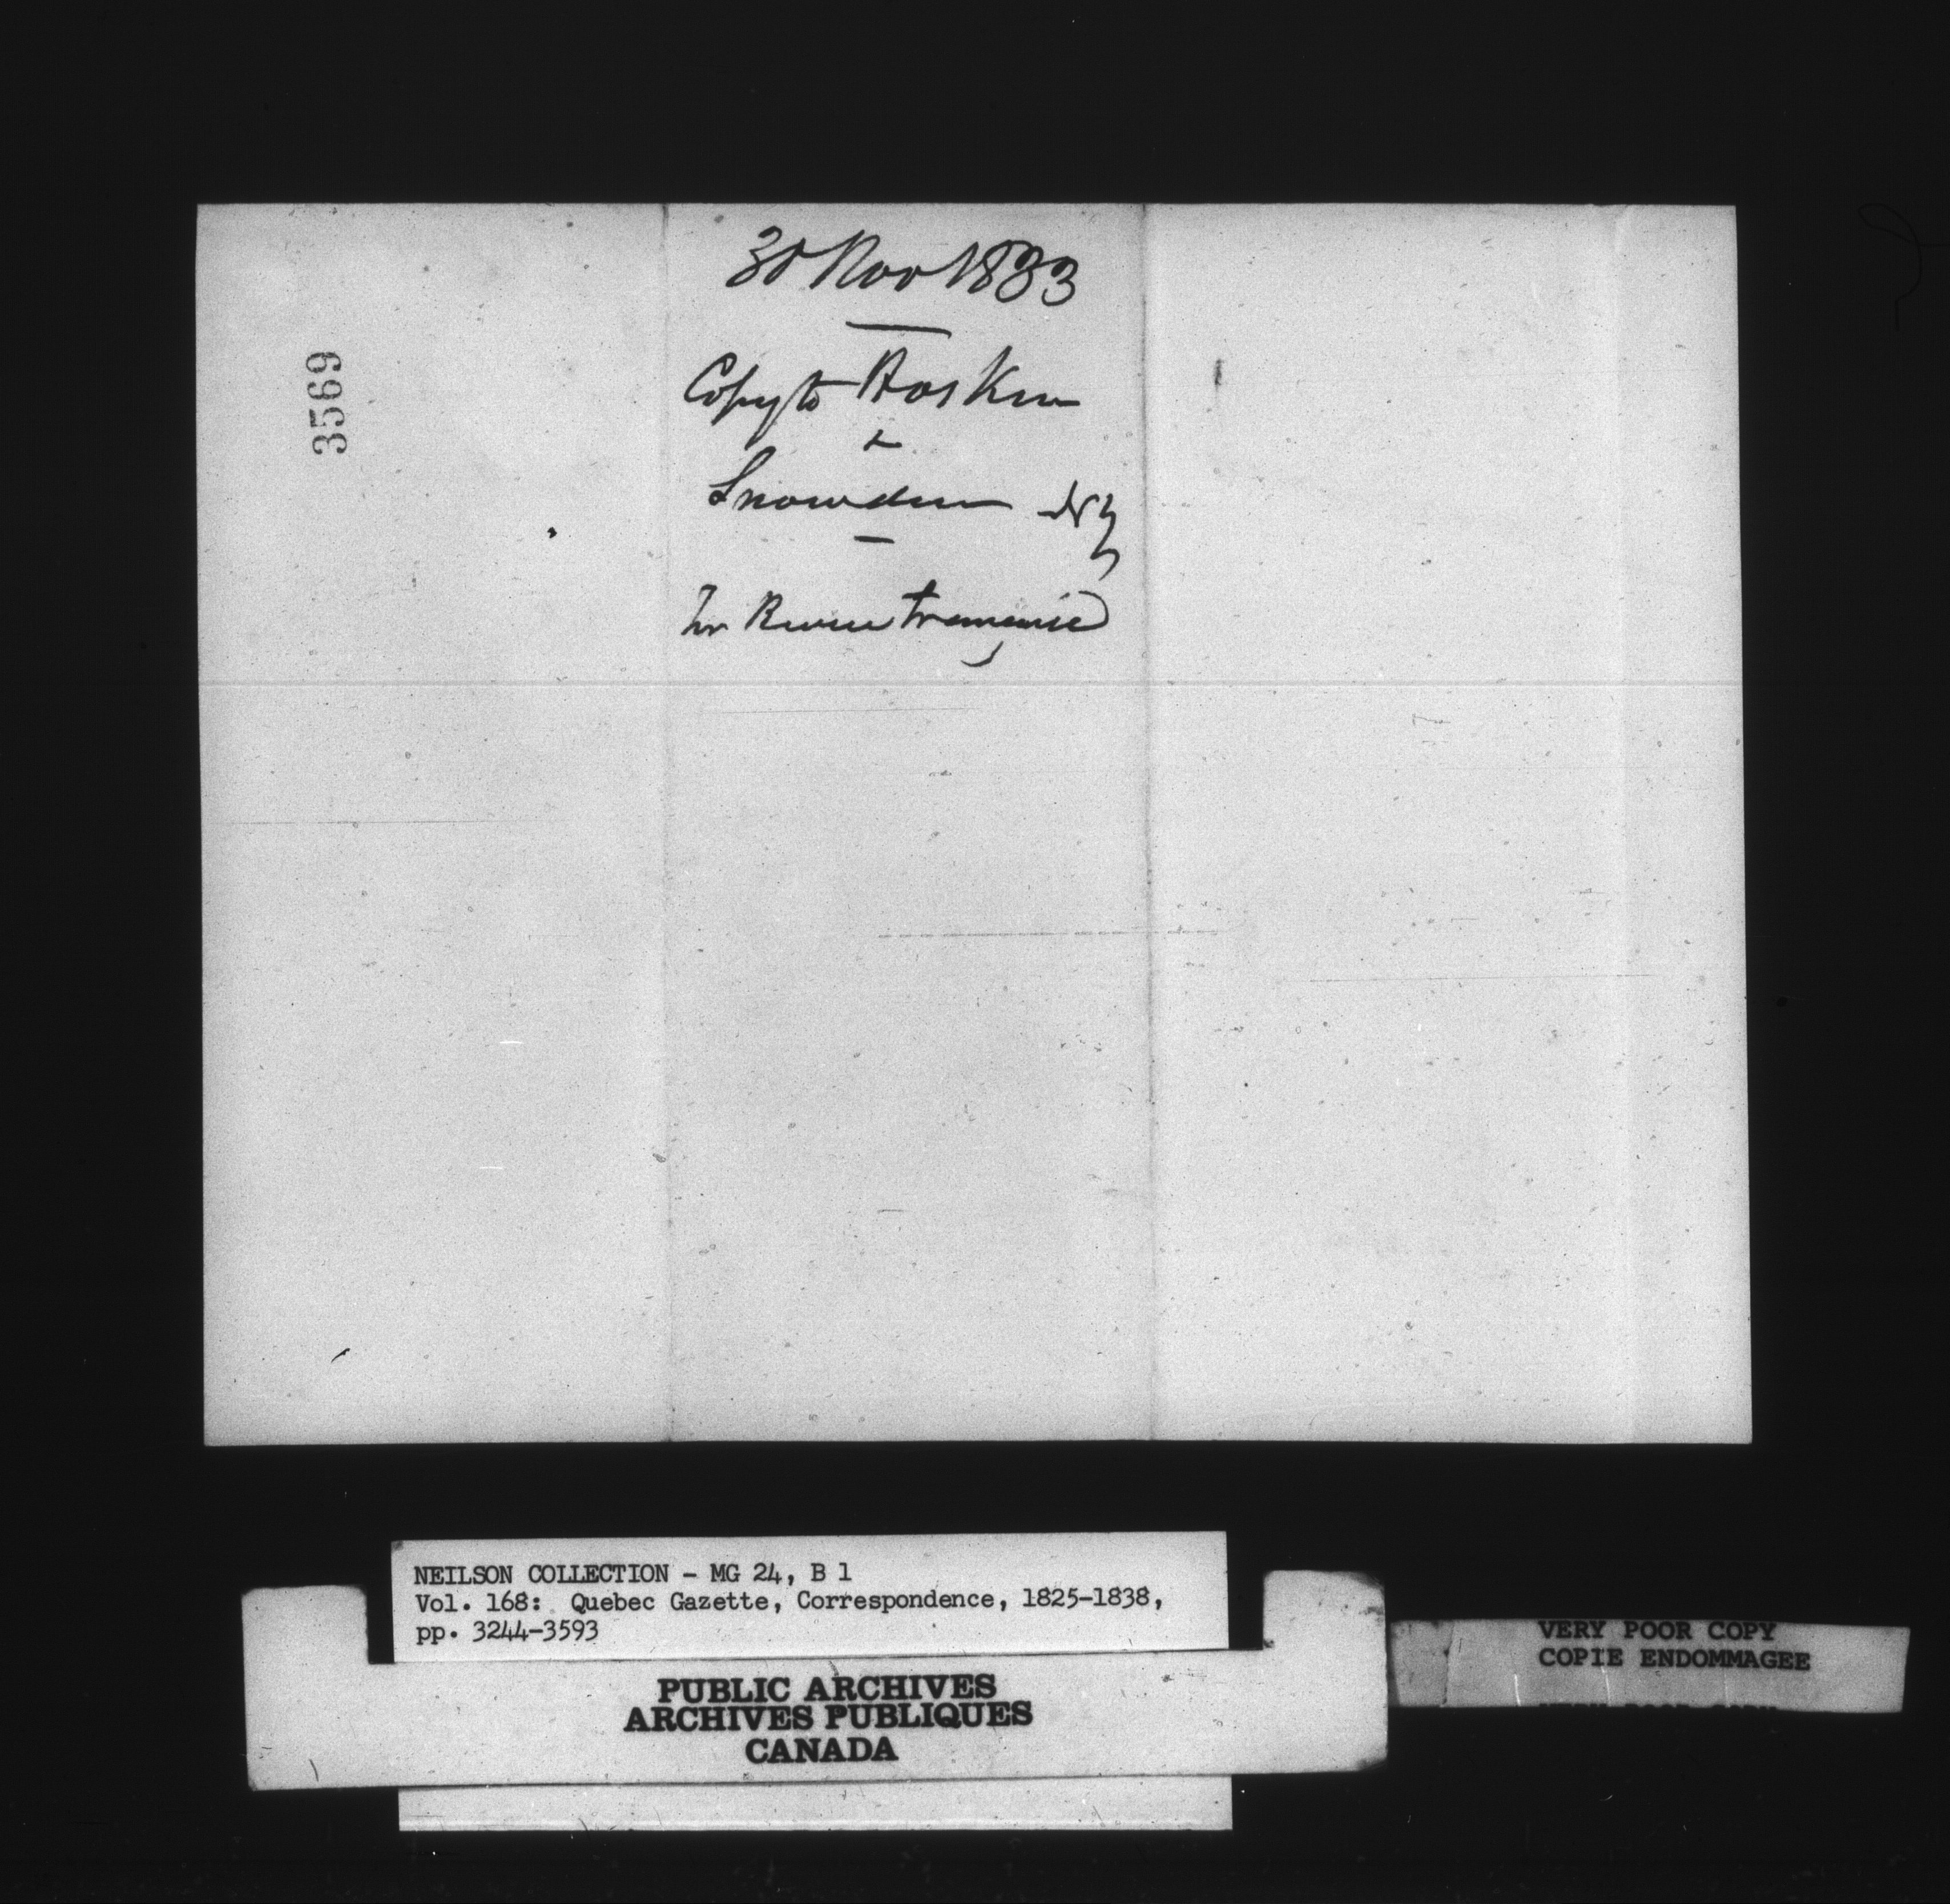 3569
30 Nov 1833
Copy to Hoskin
&
Snowden NY
for Revue française
NEILSON COLLECTION - MG 24, B 1
Vol. 168: Quebec Gazette, Correspondence, 1825-1838,
pp. 3244-3593
PUBLIC ARCHIVES
ARCHIVES PUBLIQUES
CANADA
VERY POOR COPY
COPIE ENDOMMAGEE